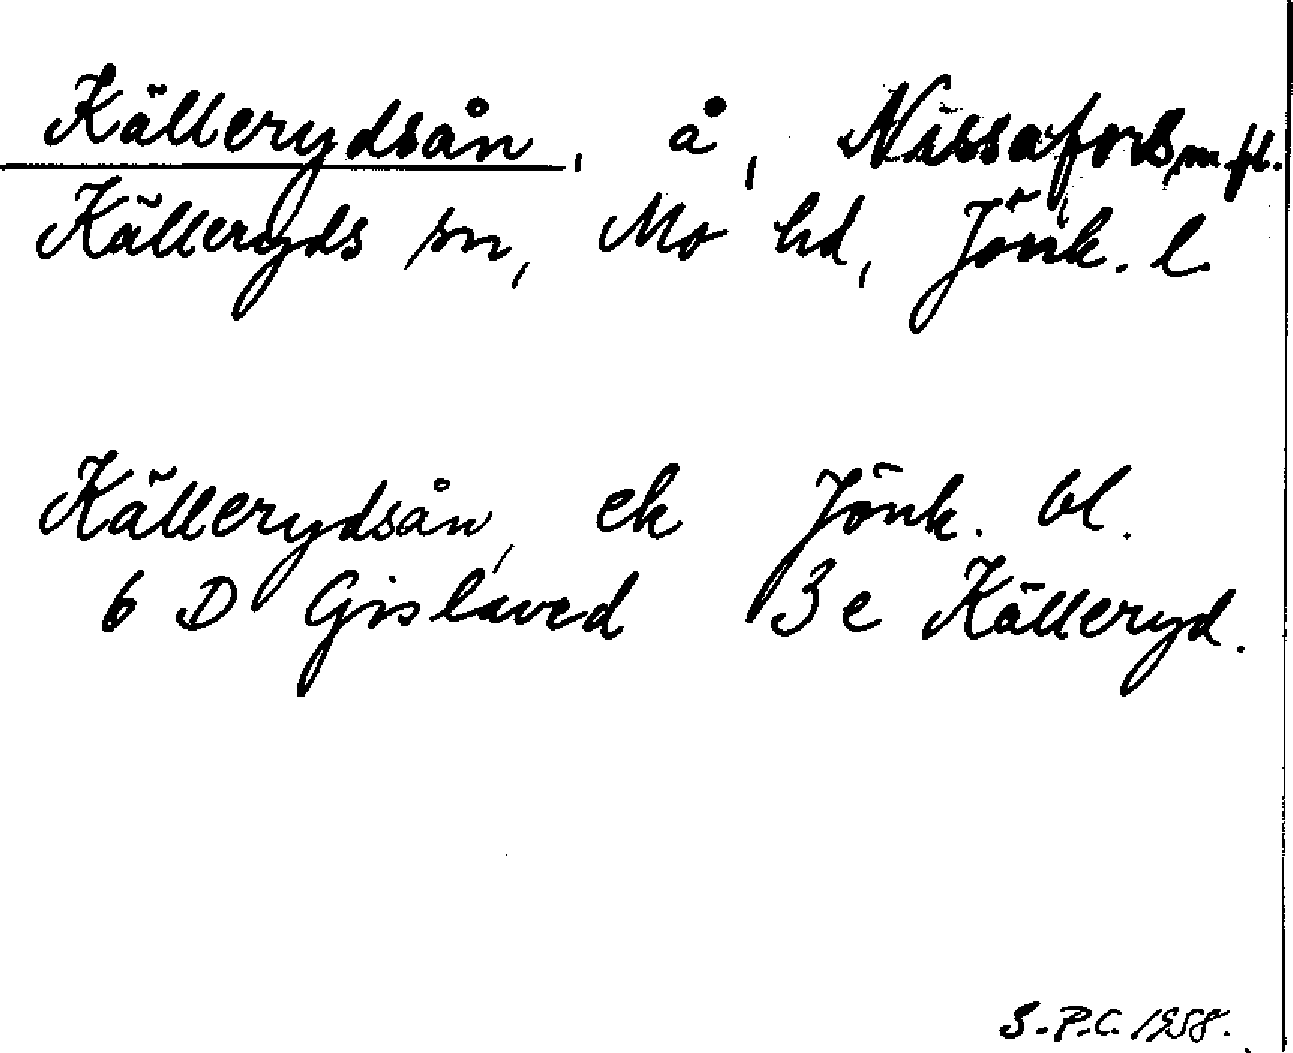 Källerydsån, å, Nissafors m.fl.
Källeryds sn, Mo hd, Jönk. l.
Källerydsån, ek Jönk. bl.
6 D Gislaved 3 e Källeryd.
S.P.C. 1958.